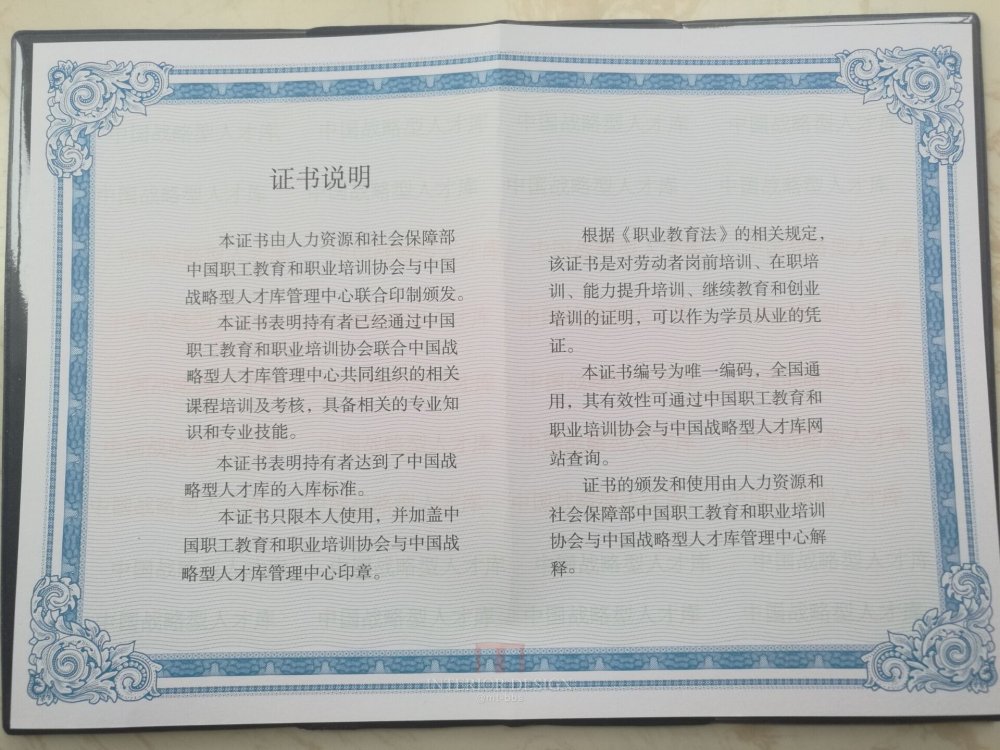 证书说明
本证书由人力资源和社会保障部
中国职工教育和职业培训协会与中国
战略型人才库管理中心联合印制颁发。
本证书表明持有者已经通过中国
职工教育和职业培训协会联合中国战
略型人才库管理中心共同组织的相关
课程培训及考核，具备相关的专业知
识和专业技能。
本证书表明持有者达到了中国战
略型人才库的入库标准。
本证书只限本人使用，并加盖中
国职工教育和职业培训协会与中国战
略型人才库管理中心印章。
根据《职业教育法》的相关规定，
该证书是对劳动者岗前培训、在职培
训、能力提升培训、继续教育和创业
培训的证明，可以作为学员从业的凭
证。
本证书编号为唯一编码，全国通
用，其有效性可通过中国职工教育和
职业培训协会与中国战略型人才库网
站查询。
证书的颁发和使用由人力资源和
社会保障部中国职工教育和职业培训
协会与中国战略型人才库管理中心解
释。
INTERIOR DESIGN